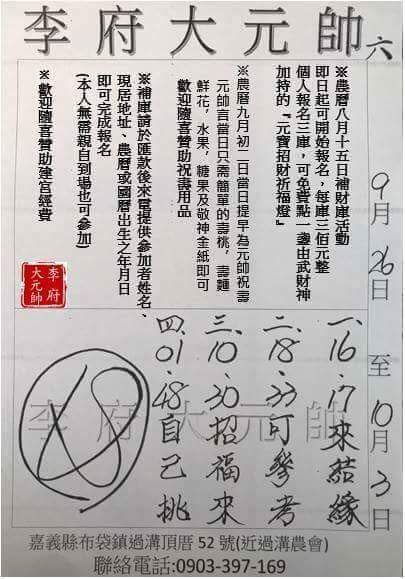 李府大元帥
六
9月26日至10月3日
※農曆八月十五日補財庫活動
即日起可開始報名，每庫三佰元整
個人報名三庫，可免費點一盞由武財神
加持的『元寶招財祈福燈』
※農曆九月初二日當日提早為元帥祝壽
元帥言當日只需簡單的壽桃，壽麵
鮮花，水果，糖果及敬神金紙即可
歡迎隨喜贊助祝壽用品
※補庫請於匯款後來電提供參加者姓名、
現居地址、農曆或國曆出生之年月日
即可完成報名
(本人無需親自到場也可參加)
※歡迎隨喜贊助建宮經費
李府
大元帥
一、16.17來結緣
二、18.33可參考
三、10.30招福來
四、01.48自己挑
李府大元帥
嘉義縣布袋鎮過溝頂厝52號(近過溝農會)
聯絡電話:0903-397-169